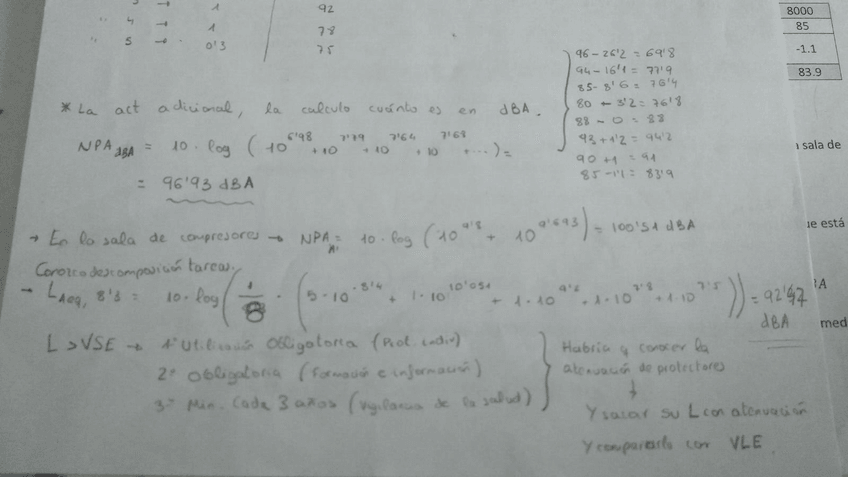 3 → 1 92
" 4 → 1 78
" 5 → 0'3 75
8000
85
-1.1
83.9
96-26'2 = 69'8
94-16'1 = 77'9
85-8'6 = 76'4
80 - 3'2 = 76'8
88 - 0 = 88
93+1'2 = 94'2
90 +1 = 91
85-1'1 = 83'9
* La act adicional, la calculo cuánto es en dBA.
NPA dBA = 10 · log (10^6'98 + 10^7'79 + 10^7'64 + 10^7'68 + ...) =
= 96'93 dBA
sala de
→ En la sala de compresores → NPA A = 10 · log (10^9'8 + 10^9'693) = 100'51 dBA
ue está
Conozco descomposición tareas.
→ LAeq, 8'3 = 10 · log (1/8 · (5 · 10^8'4 + 1 · 10^10'051 + 1 · 10^9'2 + 1 · 10^7'8 + 1 · 10^7'5)) = 92'47 dBA
med
L > VSE → 1º Utilización Obligatoria (Prot. indiv)
2º Obligatoria (formación e información)
3º Min. Cada 3 años (Vigilancia de la salud)
Habría q conocer la
atenuación de protectores
↓
Y sacar su L con atenuación
Y compararlo con VLE